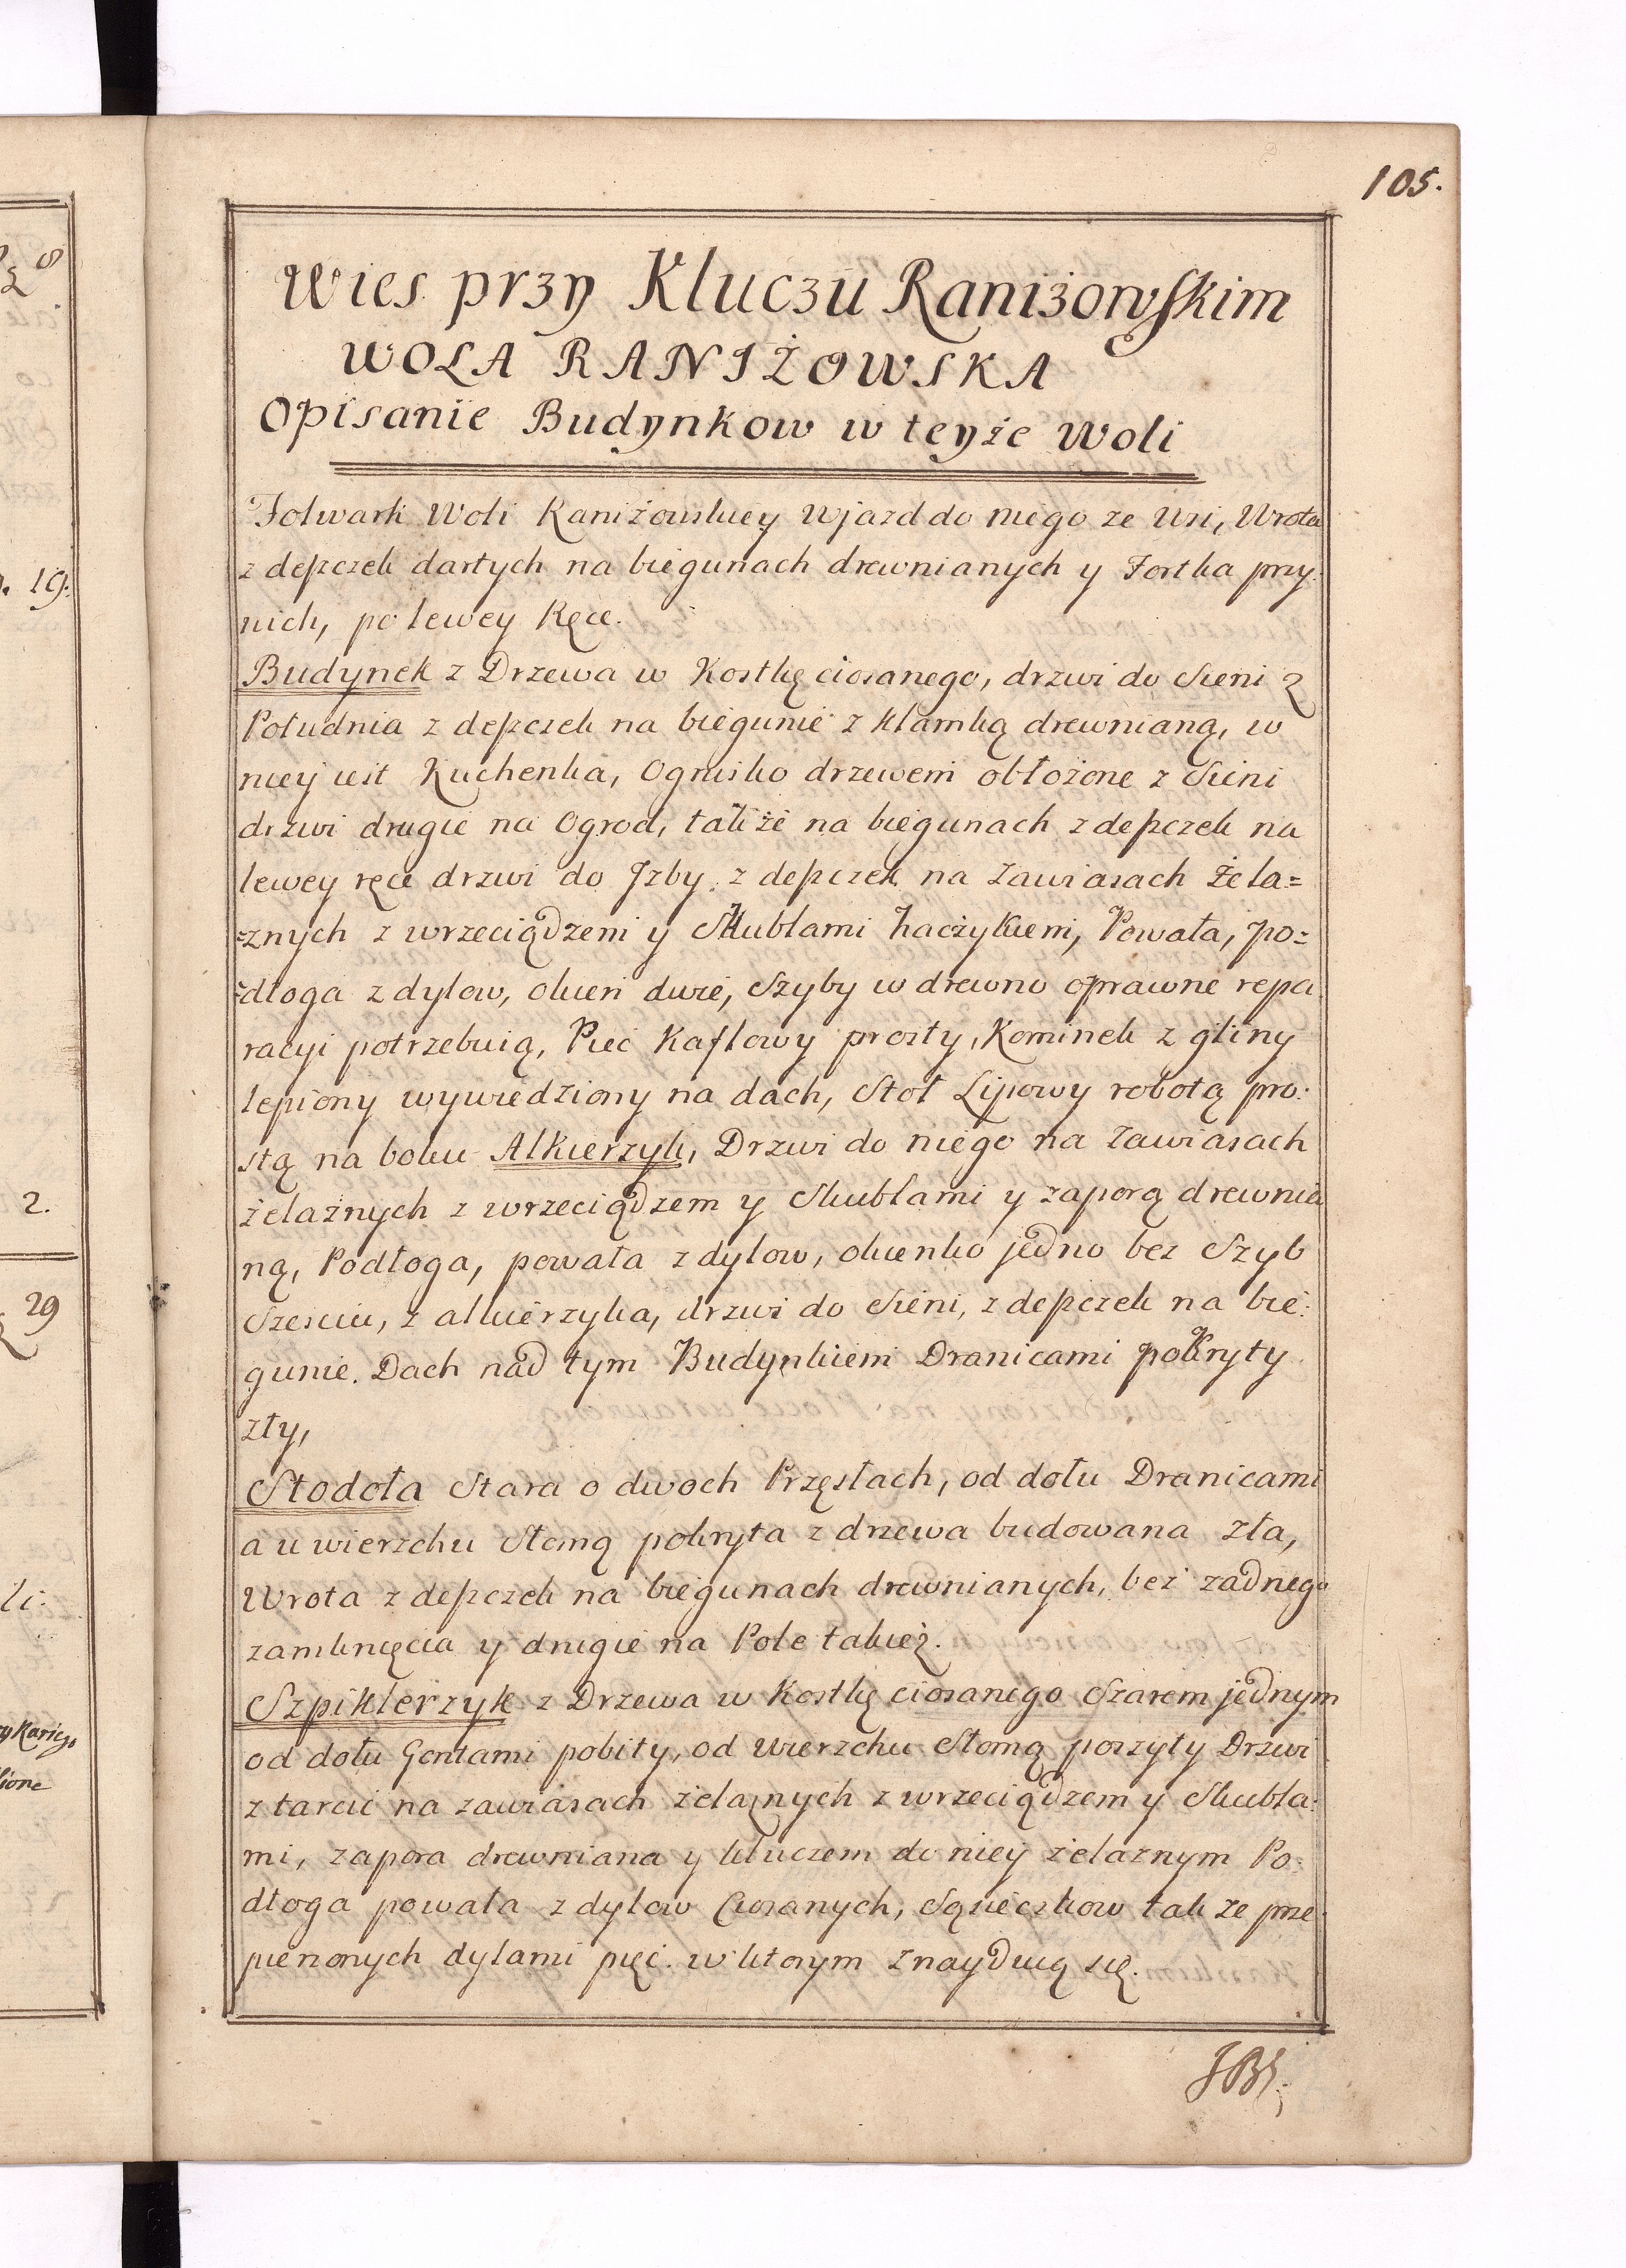 105.
Wies przy Kluczu Raniżowskim
WOLA RANIŻOWSKA
Opisanie Budynkow w teyże Woli
Folwark Woli Raniżowskiey Wjazd do niego ze Wsi, Wrota
z depczek dartych na biegunach drewnianych y Fortka przy
nich, po lewey Ręce.
Budynek z Drzewa w Kostkę ciosanego, drzwi do Sieni z
Południa z depczek na biegunie z klamką drewnianą, w
niey iest Kuchenka, Ognisko drzewem obłożone z Sieni
drzwi drugie na Ogrod, także na biegunach z depczek na
lewey ręce drzwi do Jzby z depczek na zawiasach Żela=
=znych z wrzeciądzem y Skublami haczykiem, Powała, po=
=dłoga z dylow, okien dwie, Szyby w drewno oprawne repa
racyi potrzebuią, Piec Kaflowy prosty, Kominek z gliny
lepiony wywiedziony na dach, Stoł Lipowy robotą pro:
stą na boku Alkierzyk, Drzwi do niego na zawiasach
żelaznych z wrzeciądzem y Skublami y zaporą drewnia
ną, Podłoga, powała z dylow, okienko jedno bez Szyb
Sześciu, z alkierzyka, drzwi do Sieni, z depczek na bie:
gunie. Dach nad tym Budynkiem Dranicami pokryty
zły,
Stodoła Stara o dwoch Przęsłach, od dołu Dranicami
a u wierzchu Słomą pokryta z drzewa budowana zła,
Wrota z depczek na biegunach drewnianych, bez zadnego
zamknięcia y drugie na Pole takież.
Szpiklerzyk z Drzewa w Kostkę ciosanego Szarem jednym
od dołu Gontami pobity, od Wierzchu Słomą poszyty Drzwi
z tarcic na zawiasach żelaznych z wrzeciądzem y Skubla:
mi, zapora drewniana y kluczem do niey żelaznym Po:
dłoga powała z dylow Ciosanych, Sąsieczkow tak ze prze
pierzonych dylami pięć. w ktorym znayduią się.